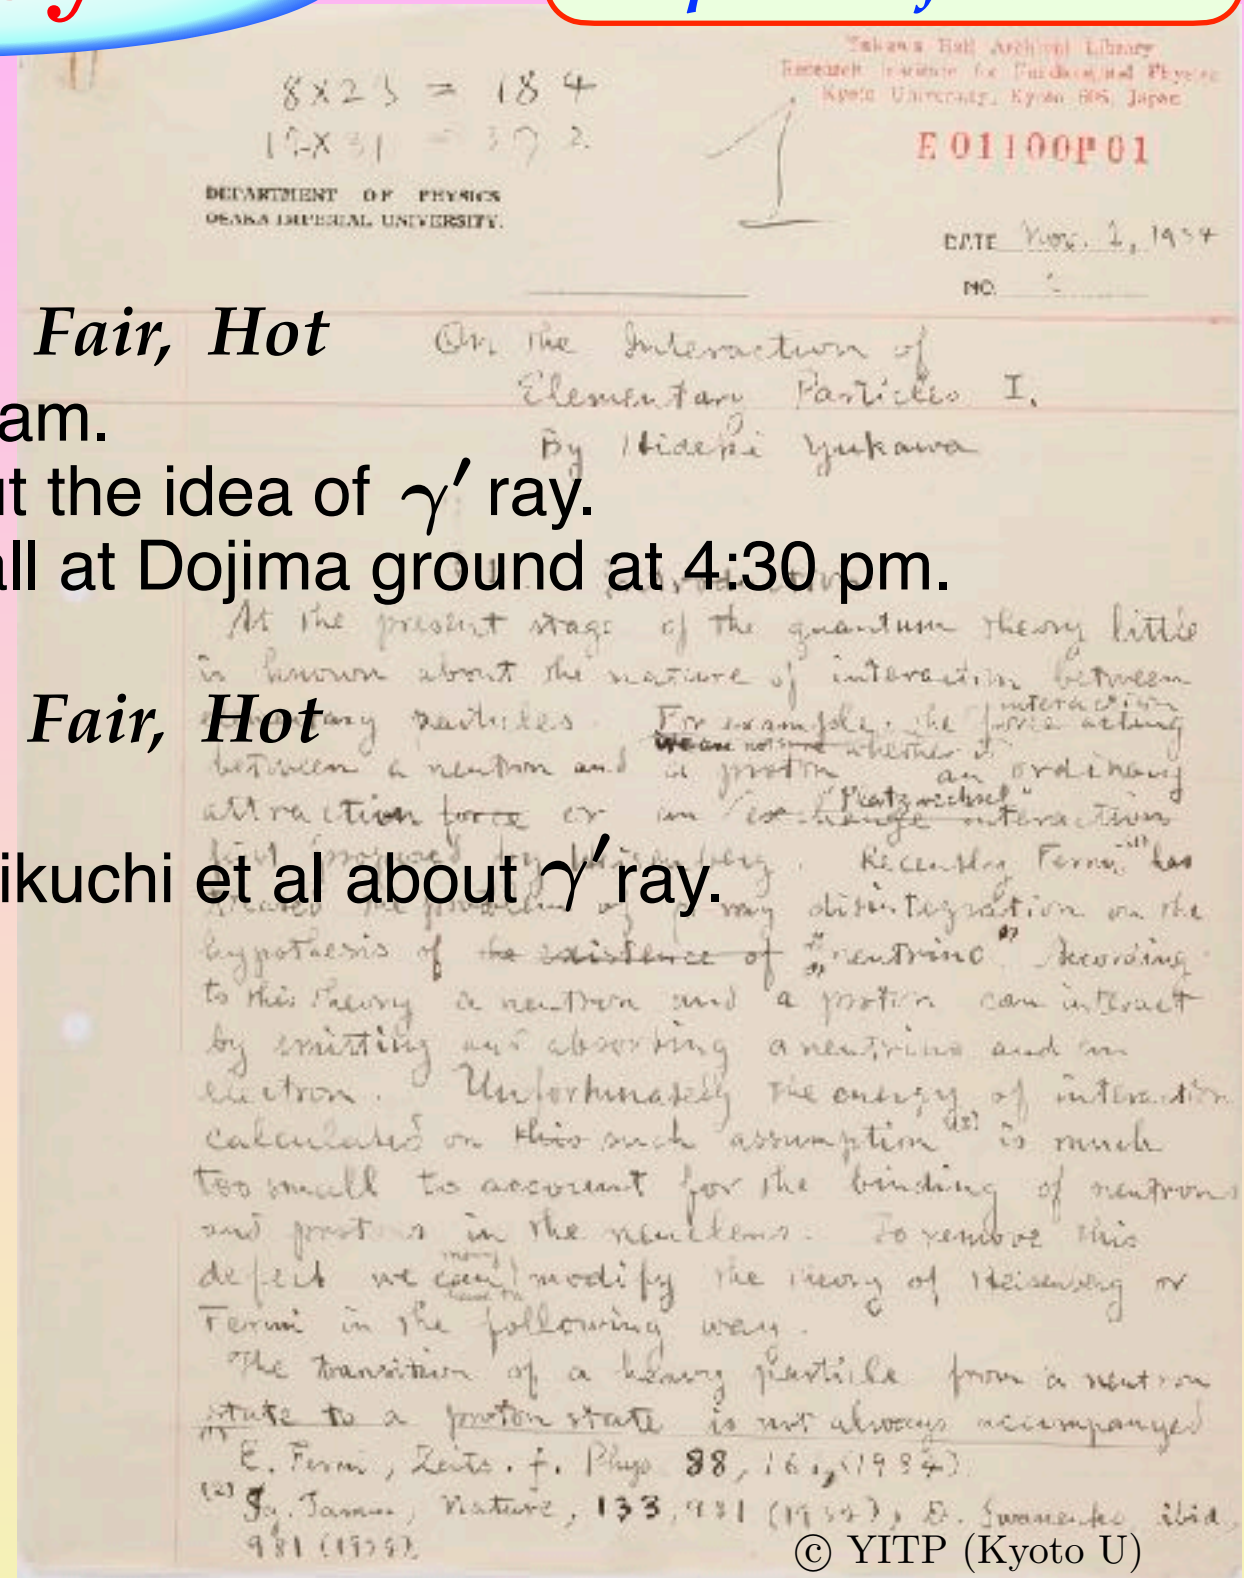 Yukawa Hall Archival Library
Research Institute for Fundamental Physics
Kyoto University, Kyoto 606, Japan
8 x 23 = 184
12 x 31 = 372
1
E01100P01
DEPARTMENT OF PHYSICS
OSAKA IMPERIAL UNIVERSITY.
DATE Nov. 1, 1934
NO.
Fair, Hot
On the Interaction of
Elementary Particles I.
am.
By Hideki Yukawa
ut the idea of γ′ ray.
all at Dojima ground at 4:30 pm.
At the present stage of the quantum theory little
is known about the nature of interaction between
Fair, Hot
elementary particles. For example, the force interaction acting
we are not sure whether it
between a neutron and a proton an ordinary
"Platzwechsel"
attraction force or an exchange interaction
first proposed by Heisenberg. Recently Fermi (1) has
ikuchi et al about γ′ ray.
treated the problem of β-ray disintegration on the
hypothesis of the existence of "neutrino". According
to this theory a neutron and a proton can interact
by emitting and absorbing a neutrino and an
electron. Unfortunately the energy of interaction
calculated on this such assumption (2) is much
too small to account for the binding of neutrons
and protons in the nucleus. To remove this
defect we can modify the theory of Heisenberg or
Fermi in the following way.
The transition of a heavy particle from a neutron
state to a proton state is not always accompanyed
(1) E. Fermi, Zeits. f. Phys. 88, 161, (1934)
(2) Ig. Tamm, Nature, 133, 981 (1934), D. Iwanenko, ibid,
981 (1934)
© YITP (Kyoto U)